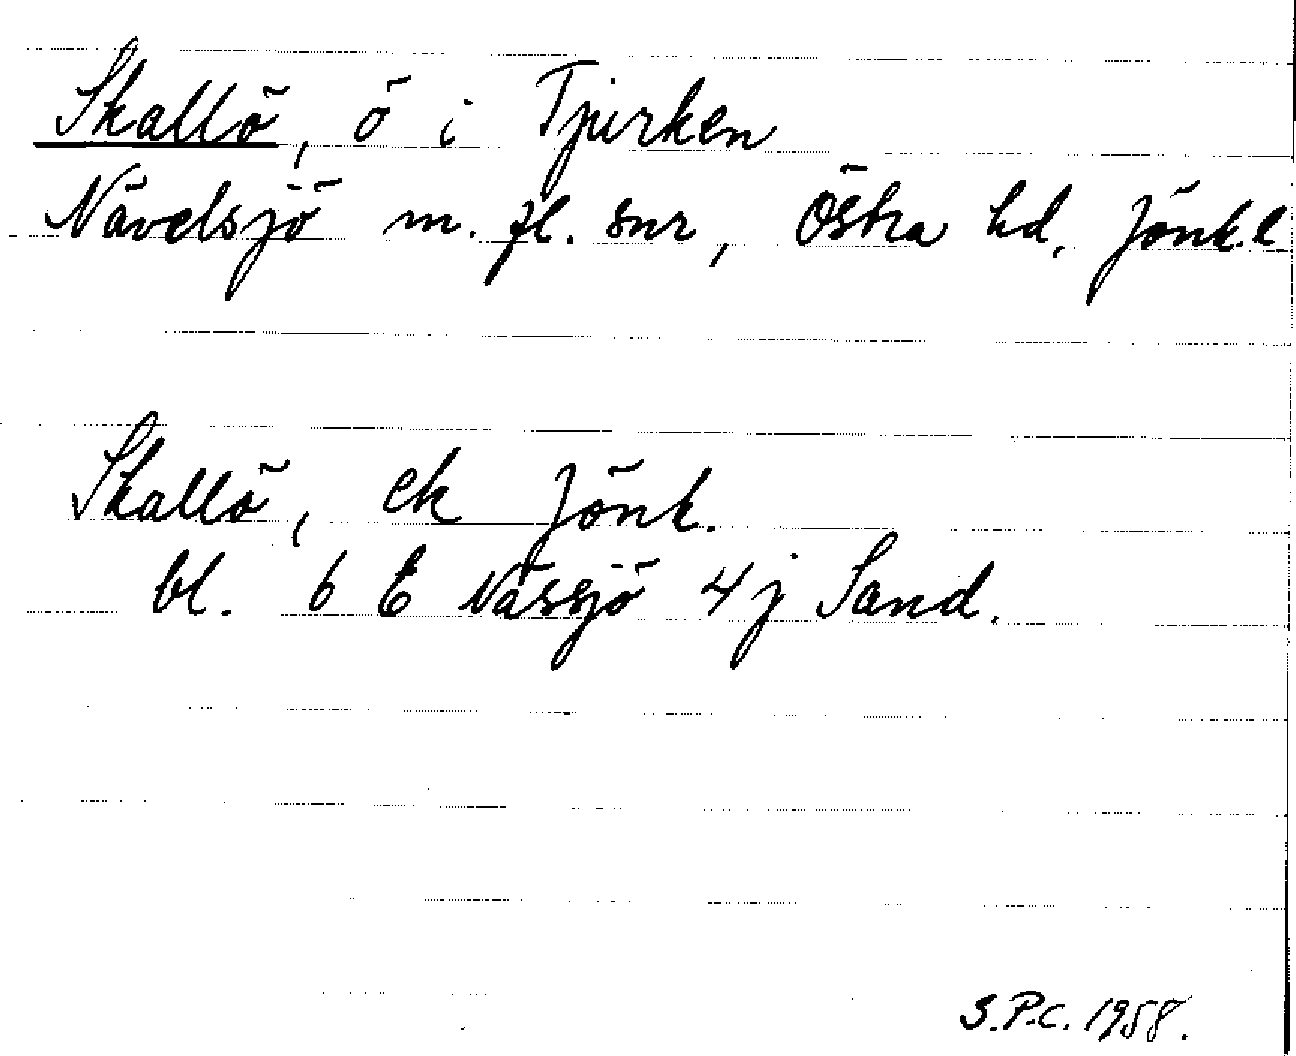 Skallö, ö i Tjurken
Nävelsjö m. fl. snr, Östra hd. Jönk. l
Skallö, ek Jönk.
bl. 6 E Nässjö 4j Sand.
S.P.C. 1958.